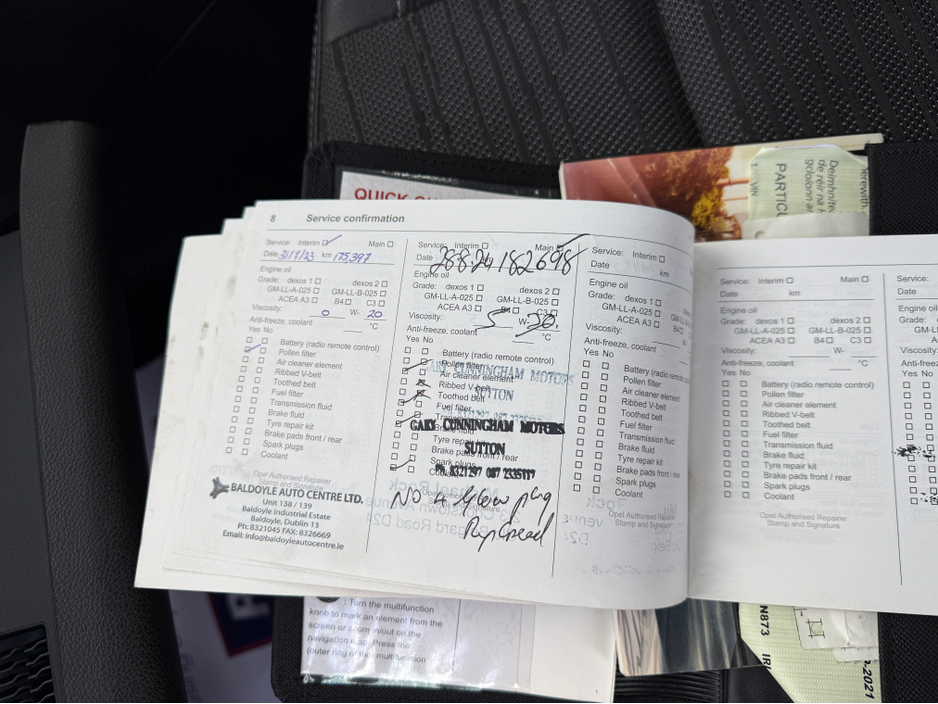 QUICK
8 Service confirmation
Service: Interim Main
Date 31/1/23 km 175,397
Engine oil
Grade: dexos 1 dexos 2
GM-LL-A-025 GM-LL-B-025
ACEA A3 B4 C3
Viscosity: 0 W- 20
Anti-freeze, coolant °C
Yes No
Battery (radio remote control)
Pollen filter
Air cleaner element
Ribbed V-belt
Toothed belt
Fuel filter
Transmission fluid
Brake fluid
Tyre repair kit
Brake pads front / rear
Spark plugs
Coolant
Opel Authorised Repairer
Stamp and Signature
BALDOYLE AUTO CENTRE LTD.
Unit 138 / 139
Baldoyle Industrial Estate
Baldoyle, Dublin 13
Ph: 8321045 FAX: 8326669
Email: info@baldoyleautocentre.ie
Service: Interim Main
Date 28.8.24 182698
Engine oil
Grade: dexos 1 dexos 2
GM-LL-A-025 GM-LL-B-025
ACEA A3 B4 C3
Viscosity: 5 W- 30
Anti-freeze, coolant °C
Yes No
Battery (radio remote control)
Pollen filter
Air cleaner element
Ribbed V-belt
Toothed belt
Fuel filter
Brake fluid
Tyre repair kit
Brake pads front / rear
Spark plugs
GARY CUNNINGHAM MOTORS
SUTTON
GARY CUNNINGHAM MOTORS
SUTTON
PH. 8321297 087 2335117
NO 4 glow plug
Service: Interim
Date km
Engine oil
Grade: dexos 1
GM-LL-A-025
ACEA A3
Viscosity:
Anti-freeze, coolant
Yes No
Battery (radio
Pollen filter
Air cleaner element
Ribbed V-belt
Toothed belt
Fuel filter
Transmission fluid
Brake fluid
Tyre repair kit
Brake pads front / rear
Spark plugs
Coolant
Opel Authorised Repairer
Stamp and Signature
Service: Interim Main
Date km
Engine oil
Grade: dexos 1 dexos 2
GM-LL-A-025 GM-LL-B-025
ACEA A3 B4 C3
Viscosity: W-
Anti-freeze, coolant °C
Yes No
Battery (radio remote control)
Pollen filter
Air cleaner element
Ribbed V-belt
Toothed belt
Fuel filter
Transmission fluid
Brake fluid
Tyre repair kit
Brake pads front / rear
Spark plugs
Coolant
Opel Authorised Repairer
Stamp and Signature
Service:
Date
Engine oil
Grade:
Yes No
: Turn the multifunction
knob to mark an element from the
screen or zoom in/out on the
navigation map. Press the
(outer ring of the multifunction
herewith.
Deimhnítear
de réir na
gcloíonn
PARTICU
1 VIN
N873 IR
-2021